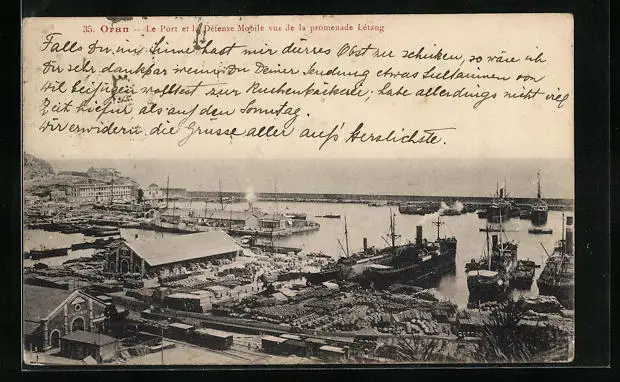 35. Oran — Le Port et la Défense Mobile vus de la promenade Létang
Falls Du im Sinne hast mir dürres Obst zu schicken, so wäre ich
Dir sehr dankbar wenn Du Deiner Sendung etwas von
beifügen wolltest zur Kuchenbäckerei; habe allerdings nicht viel
Zeit hiefür als auf den Sonntag.
Wir erwidern die Grüsse aller auf's herzlichste.